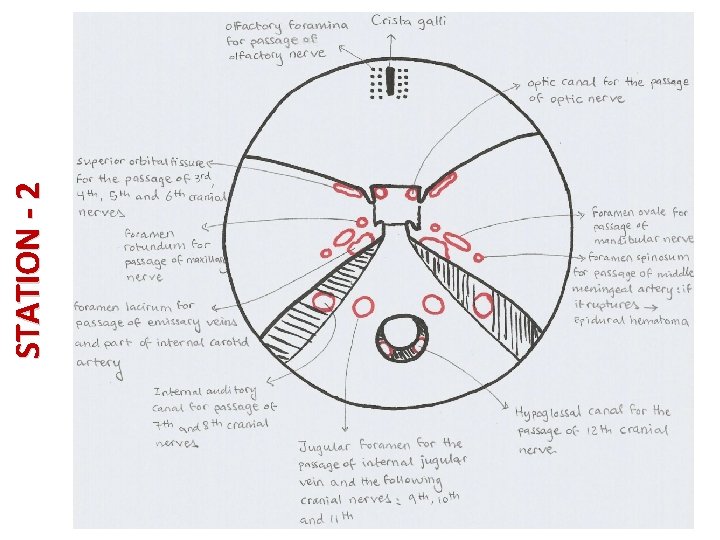 STATION - 2
olfactory foramina
for passage of
olfactory nerve
Crista galli
optic canal for the passage
of optic nerve
superior orbital fissure
for the passage of 3rd,
4th, 5th and 6th cranial
nerves
foramen
rotundum for
passage of maxillary
nerve
foramen lacirum for
passage of emissary veins
and part of internal carotid
artery
Internal auditory
canal for passage of
7th and 8th cranial
nerves
Jugular foramen for the
passage of internal jugular
vein and the following
cranial nerves: 9th, 10th
and 11th
foramen ovale for
passage of
mandibular nerve
foramen spinosum
for passage of middle
meningeal artery: if
it ruptures →
epidural hematoma
Hypoglossal canal for the
passage of 12th cranial
nerve